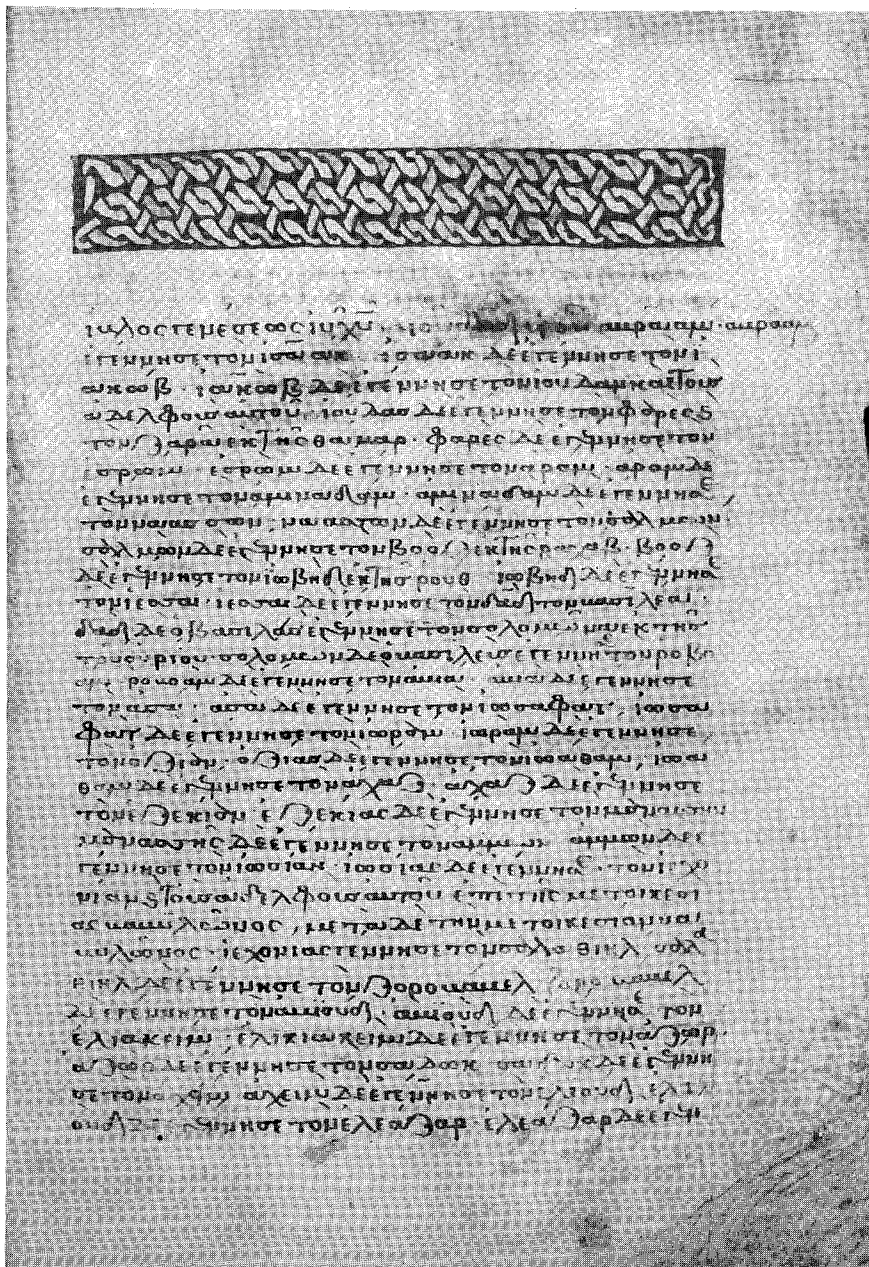 ιβλος γενεσεως ιυ χυ υιου δαδ υιου αβρααμ · αβρααμ
εγεννησε τον ισαακ · ισαακ δε εγεννησε τον ι
ακωβ · ιακωβ δε εγεννησε τον ιουδαν και τους
αδελφους αυτου · ιουδας δε εγεννησε τον φαρες ϗ
τον ζαρα εκ της θαμαρ · φαρες δε εγεννησε τον
εσρωμ · εσρωμ δε εγεννησε τον αραμ · αραμ δε
εγεννησε τον αμιναδαμ · αμιναδαμ δε εγεννησε
τον ναασσων · ναασσων δε εγεννησε τον σαλμων ·
σαλμων δε εγεννησε τον βοοζ εκ της ραχαβ · βοοζ
δε εγεννησε τον ιωβηδ εκ της ρουθ ιωβηδ δε εγεννησε
τον ιεσσαι · ιεσσαι δε εγεννησε τον δαδ τον βασιλεαν ·
δαδ δε ο βασιλευς εγεννησε τον σολομωνα εκ της
του ουριου · σολομων δε ο βασιλευς εγεννησε τον ροβο
αμ ροβοαμ δε εγεννησε τον αβια · αβια δε εγεννησε
τον ασα · ασα δε εγεννησε τον ιωσαφατ · ιωσα
φατ δε εγεννησε τον ιωραμ · ιωραμ δε εγεννησε
τον οζιαν · οζιας δε εγεννησε τον ιωαθαμ · ιωα
θαμ δε εγεννησε τον αχαζ · αχαζ δε εγεννησε
τον εζεκιαν · εζεκιας δε εγεννησε τον μανασην
μανασσης δε εγεννησε τον αμμων · αμμων δε ε
γεννησε τον ιωσιαν · ιωσιας δε εγεννησε · τον ιεχο
νιαν ϗ τους αδελφους αυτου επι της μετοικεσι
ας βαβυλωνος · μετα δε την μετοικεσιαν βα
βυλωνος · ιεχονιας γεννησε τον σαλαθιηλ σαλα
θιηλ δε εγεννησε τον ζοροβαβελ ζοροβαβελ
δε εγεννησε τον αβιουδ · αβιουδ δε εγεννησε τον
ελιακειμ · ελιακειμ δε εγεννησε τον αζωρ ·
αζωρ δε εγεννησε τον σαδωκ σαδωκ δε εγεννη
σε τον αχειμ αχειμ δε εγεννησε τον ελιουδ ελι
ουδ δε εγεννησε τον ελεαζαρ · ελεαζαρ δε εγεν